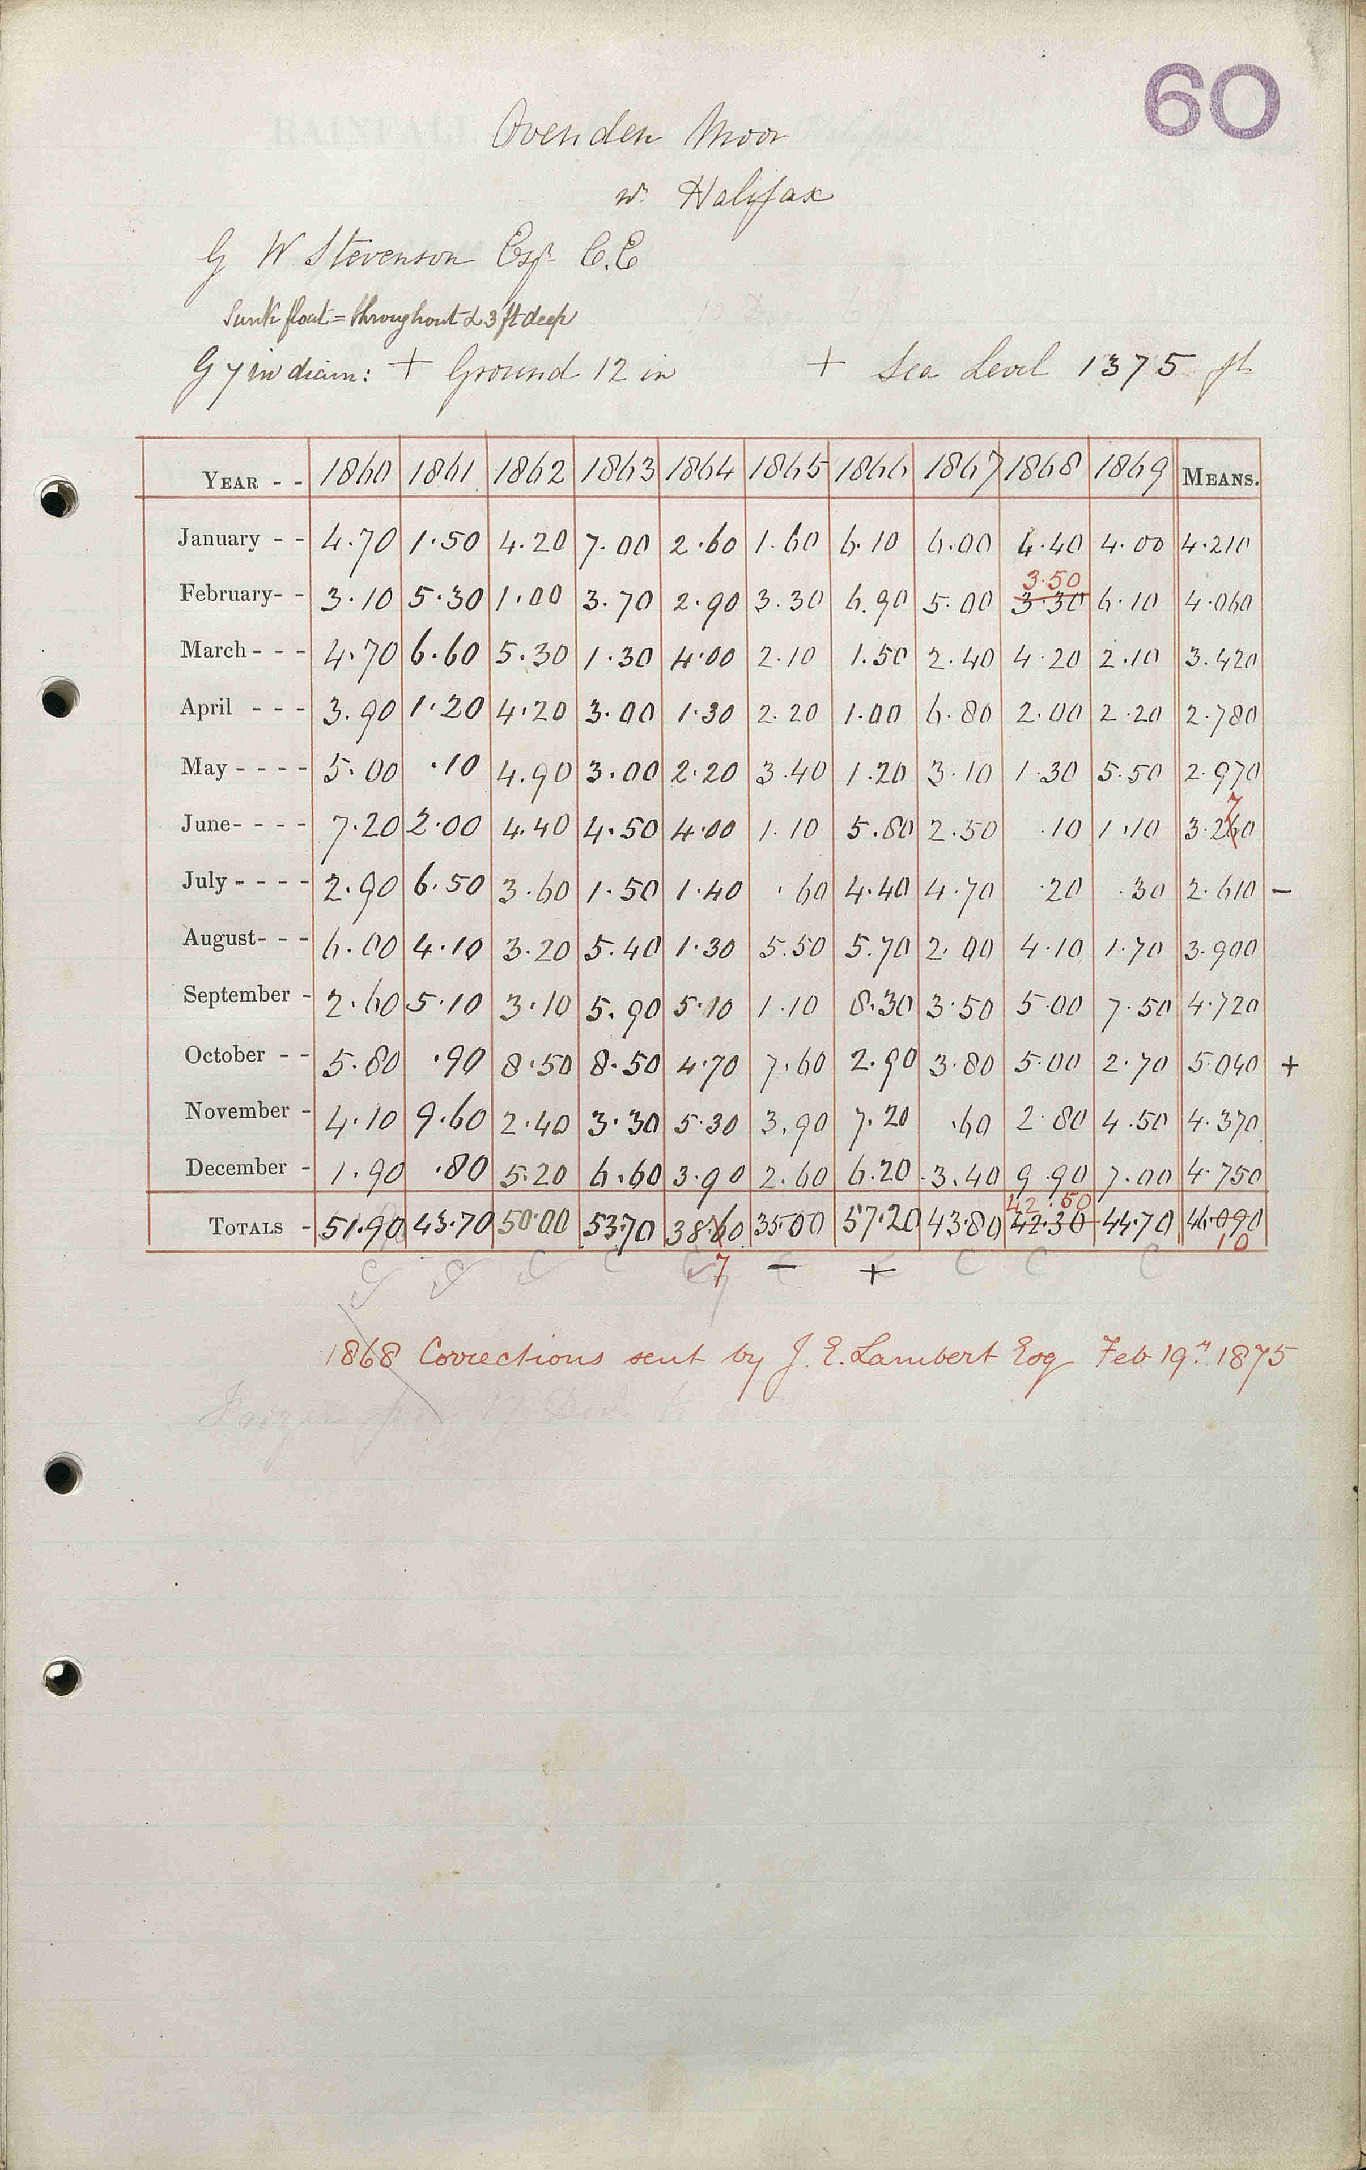 60
Ovenden Moor
nr. Halifax
G W Stevenson Esqr. C.E
Sunk float = throughout & 3 ft deep
G 7 in diam: + Ground 12 in + Sea Level 1375 ft
YEAR - - 1860 1861 1862 1863 1864 1865 1866 1867 1868 1869 MEANS.
January - - 4.70 1.50 4.20 7.00 2.60 1.60 6.10 6.00 4.40 4.00 4.210
3.50
February- - 3.10 5.30 1.00 3.70 2.90 3.30 6.90 5.00 3.30 6.10 4.060
March - - - 4.70 6.60 5.30 1.30 4.00 2.10 1.50 2.40 4.20 2.10 3.420
April - - - 3.90 1.20 4.20 3.00 1.30 2.20 1.00 6.80 2.00 2.20 2.780
May - - - - 5.00 .10 4.90 3.00 2.20 3.40 1.20 3.10 1.30 5.50 2.970
7
June- - - - 7.20 2.00 4.40 4.50 4.00 1.10 5.80 2.50 .10 1.10 3.260
July - - - - 2.90 6.50 3.60 1.50 1.40 .60 4.40 4.70 .20 .30 2.610 -
August- - - 6.00 4.10 3.20 5.40 1.30 5.50 5.70 2.00 4.10 1.70 3.900
September - 2.60 5.10 3.10 5.90 5.10 1.10 8.30 3.50 5.00 7.50 4.720
October - - 5.80 .90 8.50 8.50 4.70 7.60 2.90 3.80 5.00 2.70 5.040 +
November - 4.10 9.60 2.40 3.30 5.30 3.90 7.20 .60 2.80 4.50 4.370
December - 1.90 .80 5.20 6.60 3.90 2.60 6.20 3.40 9.90 7.00 4.750
42.50
TOTALS - 51.90 43.70 50.00 53.70 38.60 35.00 57.20 43.80 42.30 44.70 46.090
10
7 - +
1868 Corrections sent by J. E. Lambert Esq Feb 19th. 1875